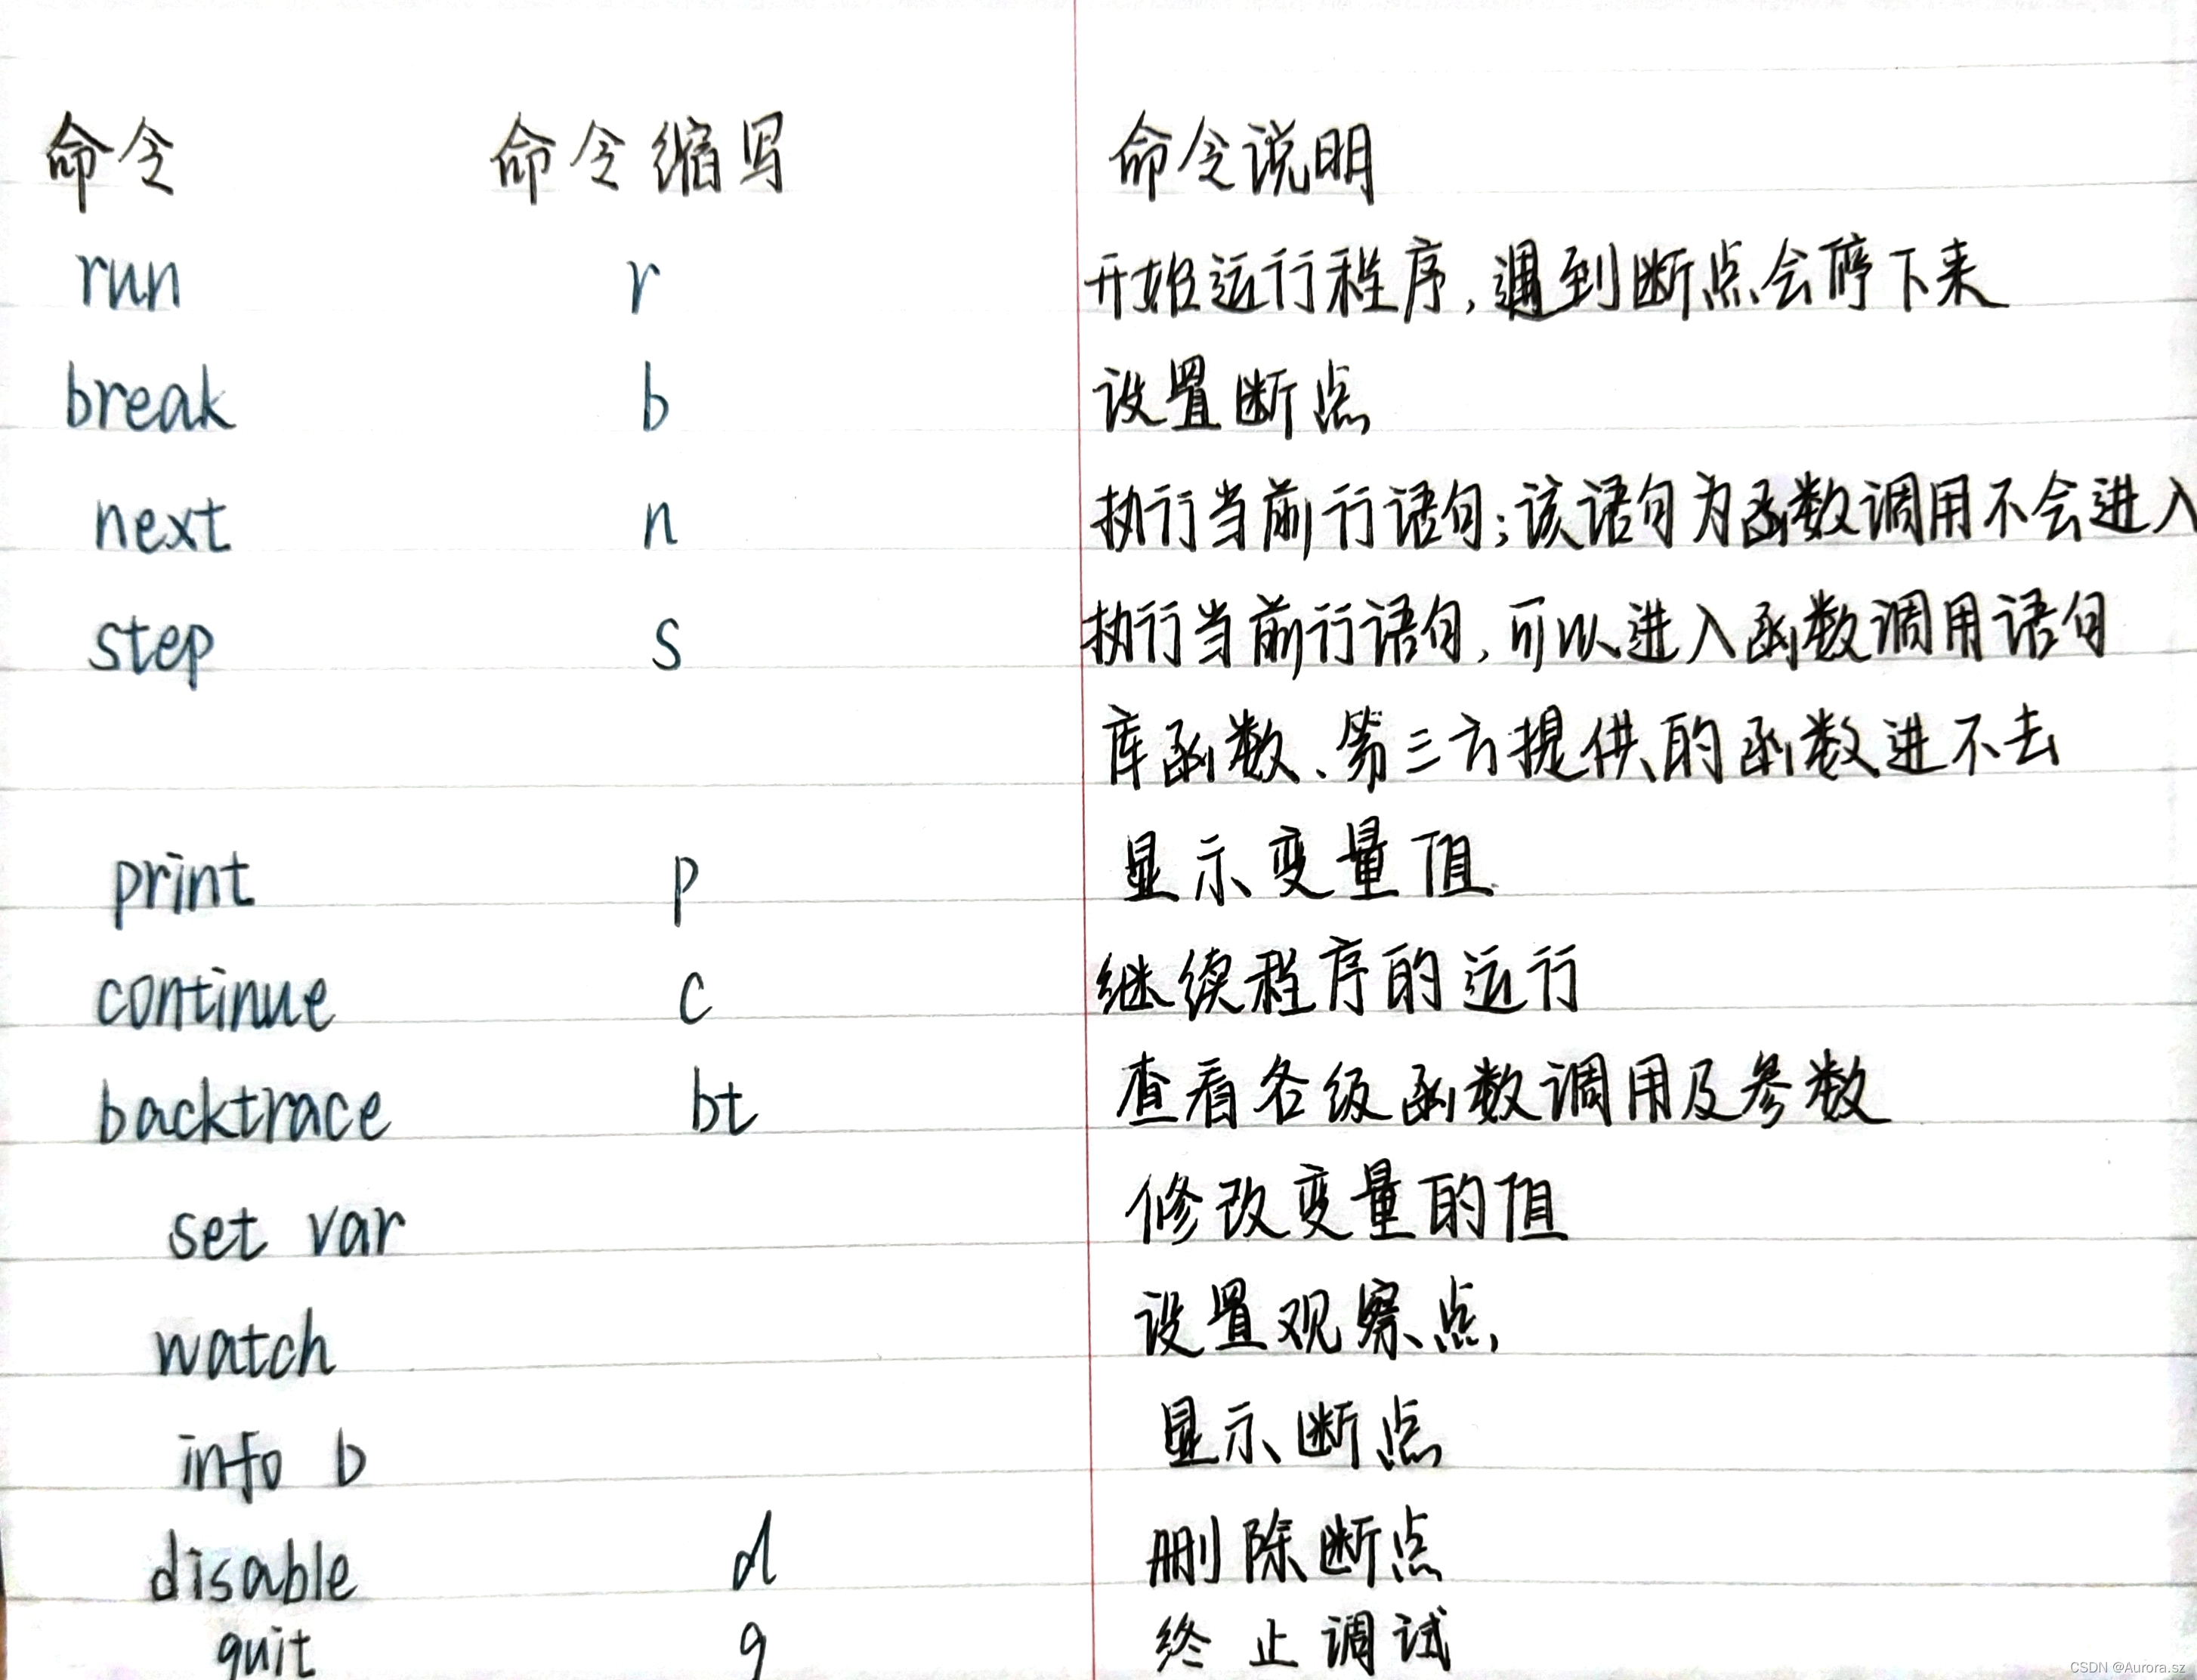 命令 命令缩写 命令说明
run r 开始运行程序,遇到断点会停下来
break b 设置断点
next n 执行当前行语句;该语句为函数调用不会进入
step s 执行当前行语句,可以进入函数调用语句
库函数、第三方提供的函数进不去
print p 显示变量值
continue c 继续程序的运行
backtrace bt 查看各级函数调用及参数
set var 修改变量的值
watch 设置观察点,
info b 显示断点
disable d 删除断点
quit q 终止调试
CSDN @Aurora.sz